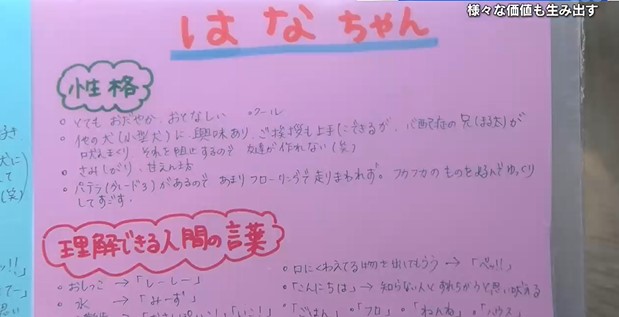 様々な価値も生み出す
はなちゃん
性格
とても おだやか、おとなしい 。クール
他の犬(小型犬)に、興味あり、ご挨拶も上手にできるが、心配症の兄(まる太)が
吠えまくり それを阻止するので 友達が作れない(笑)
さみしがり、甘えん坊
パテラ(グレード3)があるので あまりフローリングで走りまわれず。フカフカのものを選んでゆっくり
してすごす。
理解できる人間の言葉
おしっこ → 「しーしー」
水 → 「みーず」
「いこ!」
口にくわえてる物を出してもらう → 「ペッ!!」
「こんにちは」 → 知らない人とすれちがうと思い吠える
「ごはん」「フロ」「ねんね」「ハウス」
(笑)